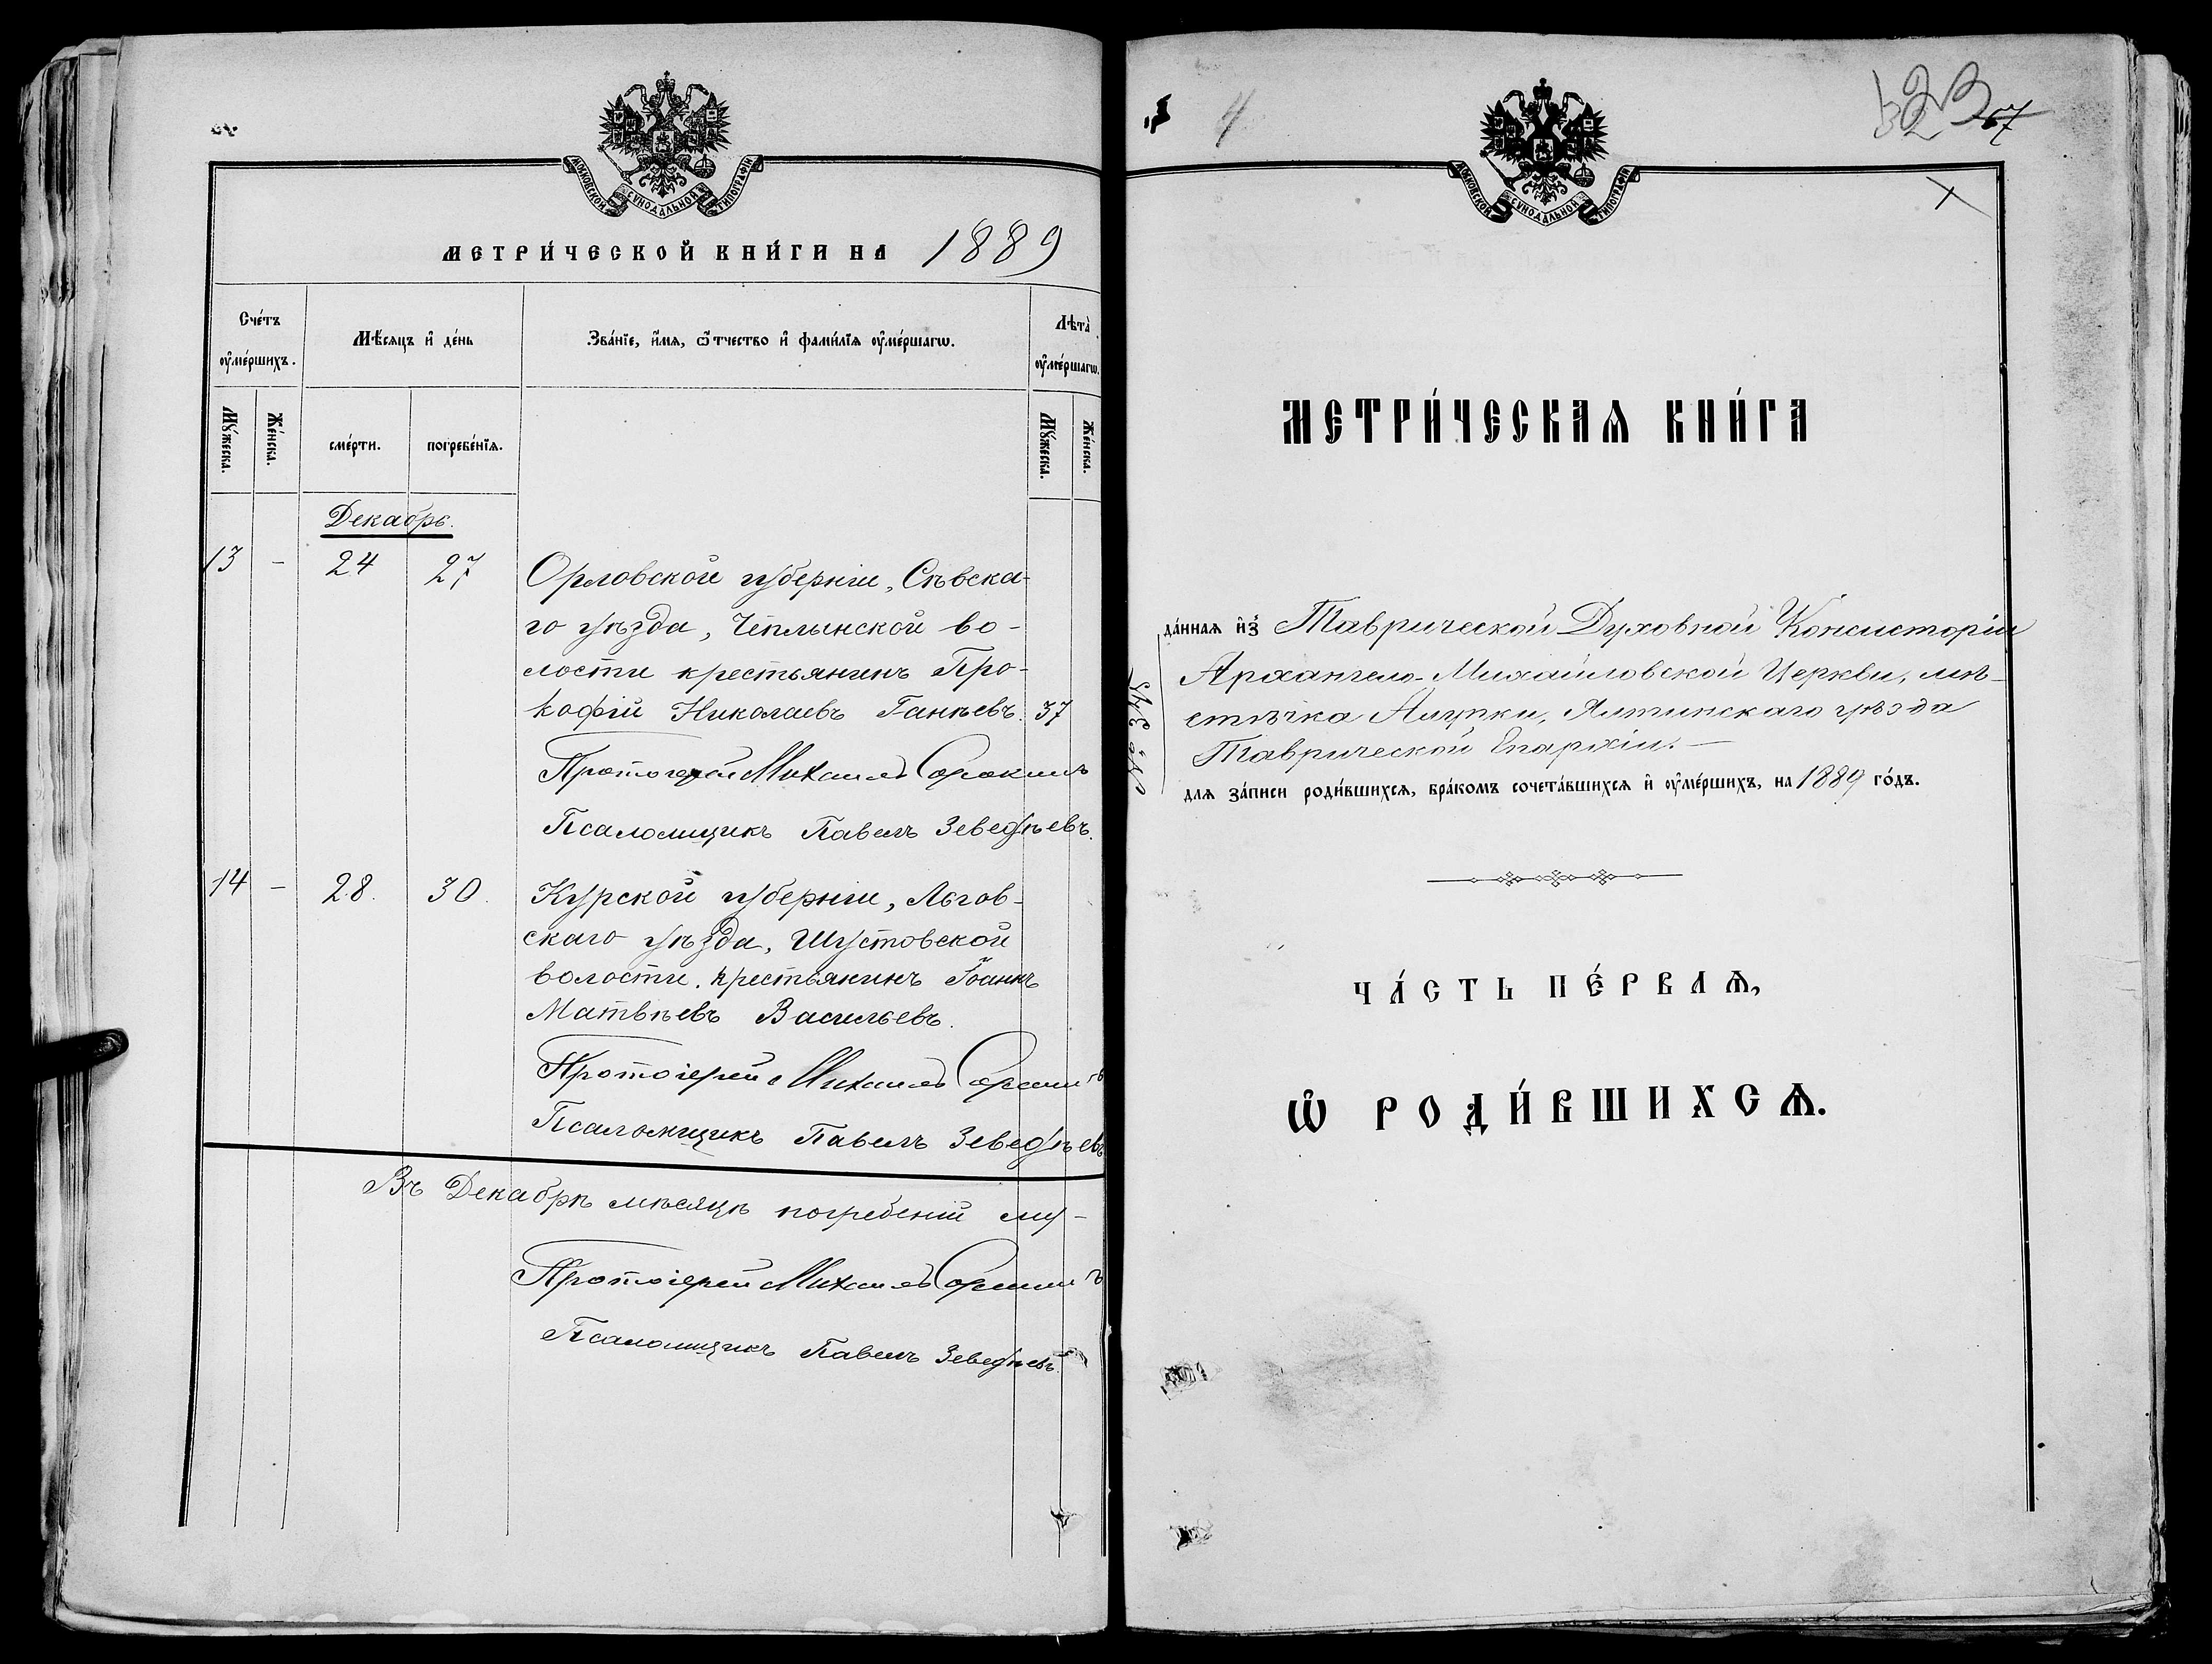 МОСКОВСКОЙ СѴНОДАЛЬНОЙ ТИПОГРАФІИ
МЕТРИ́ЧЕСКОЙ КНИ́ГИ НА 1889
Сче́тъ ᲂу҆ме́ршихъ.
Мѣ́сяцъ и҆ де́нь
Зва́нїе, и҆́мѧ, ѻ҆́тчество и҆ фами́лїѧ ᲂу҆ме́ршагѡ.
Лѣта̀ ᲂу҆ме́ршагѡ.
Мꙋ́жеска.
Же́нска.
сме́рти.
погребе́нїѧ.
Мꙋ́жеска.
Же́нска.
Декабрь.
13 - 24 27 Орловской губерніи, Сѣвска-
го уѣзда, Чеплынской во-
лости крестьянинъ Про-
кофій Николаевъ Ганѣевъ. 37
Протоіерей Михаилъ Сорокинъ
Псаломщикъ Павелъ Зеведѣевъ.
14 - 28. 30. Курской губерніи, Льгов-
скаго уѣзда, Шустовской
волости, крестьянинъ Іоаннъ
Матвѣевъ Васильевъ.
Протоіерей Михаилъ Сорокинъ
Псаломщикъ Павелъ Зеведѣевъ
Въ Декабрѣ мѣсяцѣ погребеній му-
Протоіерей Михаилъ Сорокинъ
Псаломщикъ Павелъ Зеведѣевъ.
4
МОСКОВСКОЙ СѴНОДАЛЬНОЙ ТИПОГРАФІИ
МЕТРИ́ЧЕСКАѦ КНИ́ГА
да́ннаѧ и҆з̾ Таврической Духовной Консисторіи
Архангело-Михайловской Церкви, мѣ-
стѣчка Алупки, Ялтинскаго уѣзда
Таврической Епархіи. —
для за́писи роди́вшихсѧ, бра́комъ сочета́вшихсѧ и҆ ᲂу҆ме́ршихъ, на 1889 го́дъ.
ЧА́СТЬ ПЕ́РВАѦ,
Ѡ҆ РОДИ́ВШИХСѦ.